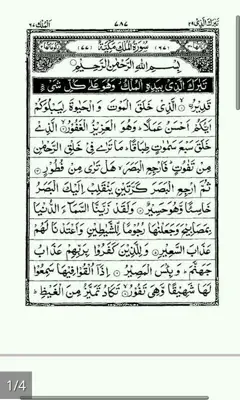 تبارك الذي ٢٩ ٧٨٧ الملك ٦٧
(٦٧) سُورَةُ الْمُلْكِ مَكِّيَّةٌ (٧٧)
بِسْمِ اللهِ الرَّحْمٰنِ الرَّحِيْمِ
تَبٰرَكَ الَّذِيْ بِيَدِهِ الْمُلْكُ وَهُوَ عَلٰى كُلِّ شَيْءٍ
قَدِيْرُ ۨ الَّذِيْ خَلَقَ الْمَوْتَ وَ الْحَيٰوةَ لِيَبْلُوَكُمْ
اَيُّكُمْ اَحْسَنُ عَمَلًا وَهُوَ الْعَزِيْزُ الْغَفُوْرُ الَّذِيْ
خَلَقَ سَبْعَ سَمٰوٰتٍ طِبَاقًا مَا تَرٰى فِيْ خَلْقِ الرَّحْمٰنِ
مِنْ تَفٰوُتٍ فَارْجِعِ الْبَصَرَ هَلْ تَرٰى مِنْ فُطُوْرٍ
ثُمَّ ارْجِعِ الْبَصَرَ كَرَّتَيْنِ يَنْقَلِبْ اِلَيْكَ الْبَصَرُ
خَاسِئًا وَّهُوَ حَسِيْرٌ وَلَقَدْ زَيَّنَّا السَّمَآءَ الدُّنْيَا
بِمَصَابِيْحَ وَجَعَلْنٰهَا رُجُوْمًا لِّلشَّيٰطِيْنِ وَاَعْتَدْنَا لَهُمْ
عَذَابَ السَّعِيْرِ وَلِلَّذِيْنَ كَفَرُوْا بِرَبِّهِمْ عَذَابُ
جَهَنَّمَ وَبِئْسَ الْمَصِيْرُ اِذَآ اُلْقُوْا فِيْهَا سَمِعُوْا
لَهَا شَهِيْقًا وَّهِيَ تَفُوْرُ تَكَادُ تَمَيَّزُ مِنَ الْغَيْظِ
1/4